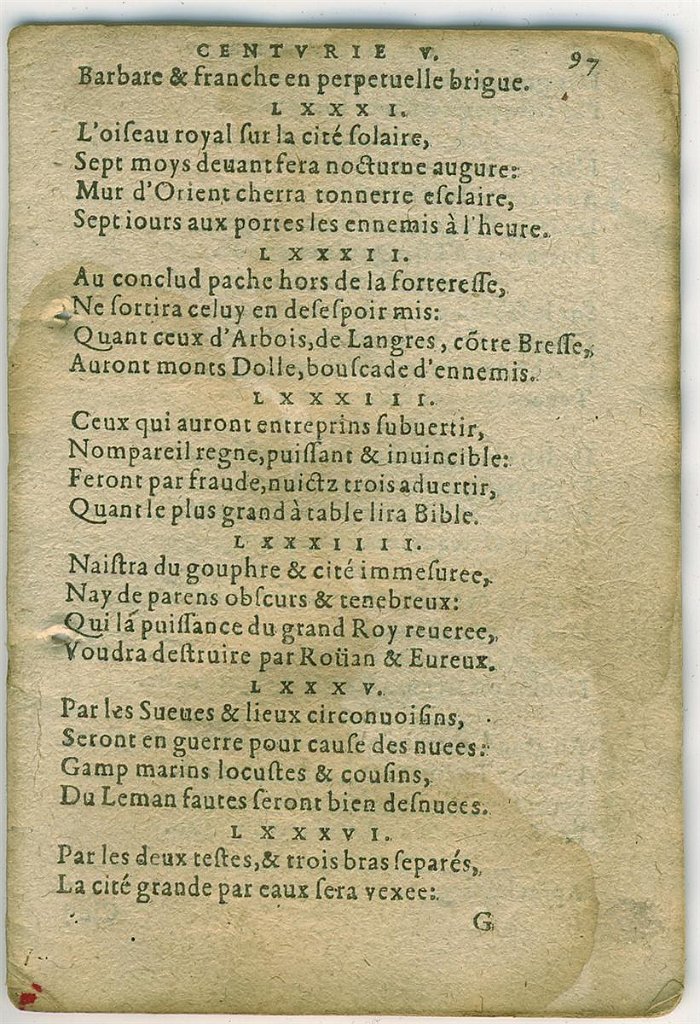 CENTVRIE V. 97
Barbare & franche en perpetuelle brigue.
LXXXI.
L'oiſeau royal ſur la cité ſolaire,
Sept moys deuant fera nocturne augure:
Mur d'Orient cherra tonnerre eſclaire,
Sept iours aux portes les ennemis à l'heure.
LXXXII.
Au conclud pache hors de la fortereſſe,
Ne ſortira celuy en deſeſpoir mis:
Quant ceux d'Arbois, de Langres, cõtre Breſſe,
Auront monts Dolle, bouſcade d'ennemis.
LXXXIII.
Ceux qui auront entreprins ſubuertir,
Nompareil regne, puiſſant & inuincible:
Feront par fraude, nuictz trois aduertir,
Quant le plus grand à table lira Bible.
LXXXIIII.
Naiſtra du gouphre & cité immeſuree,
Nay de parens obſcurs & tenebreux:
Qui la puiſſance du grand Roy reueree,
Voudra deſtruire par Roüan & Eureux.
LXXXV.
Par les Sueues & lieux circonuoiſins,
Seront en guerre pour cauſe des nuees:
Gamp marins locuſtes & couſins,
Du Leman fautes ſeront bien deſnuees.
LXXXVI.
Par les deux teſtes, & trois bras ſeparés,
La cité grande par eaux ſera vexee:
G